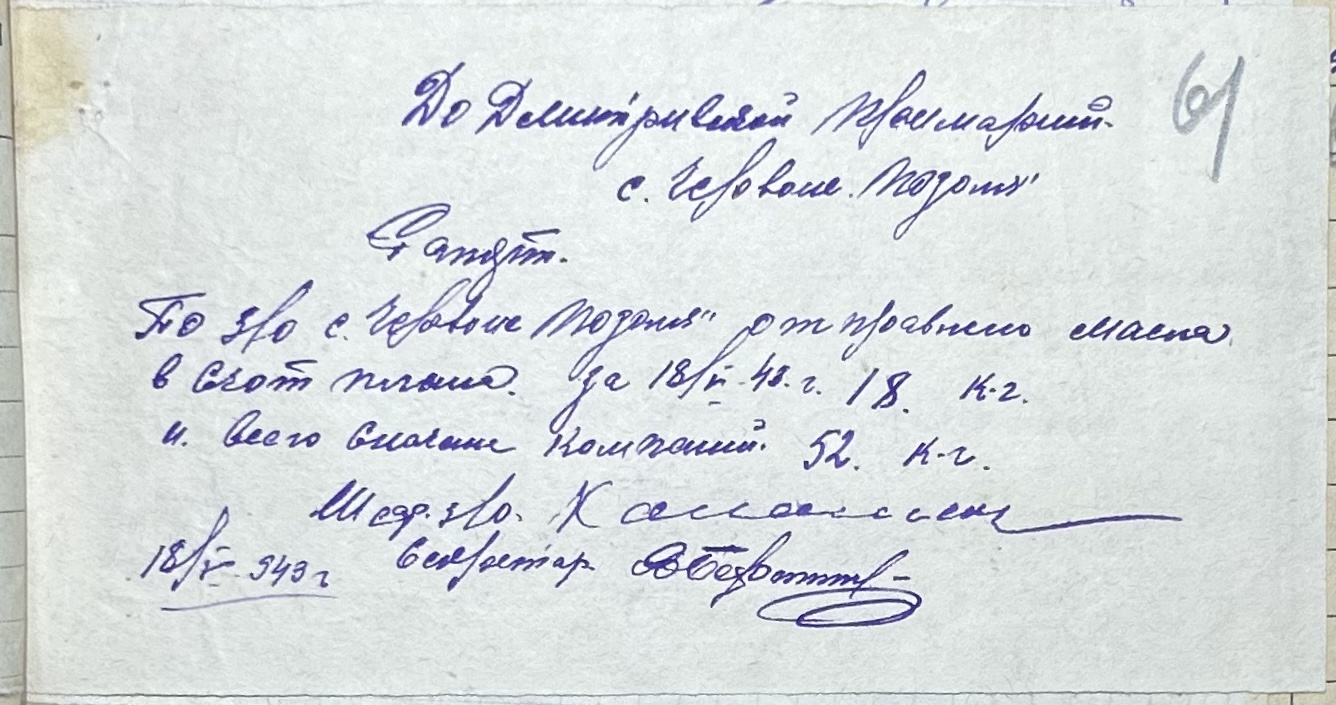 61
До Дмитривской Преимарии
с. Червоне. Подолля
Рапорт.
По з/о с. Червоне Подолля отправлено масла
в счот плана. за 18/V-43.г. 18. к-г.
и. всего сначала компании. 52. к-г.
Шеф. з/о.
18/V-943 г Секретар